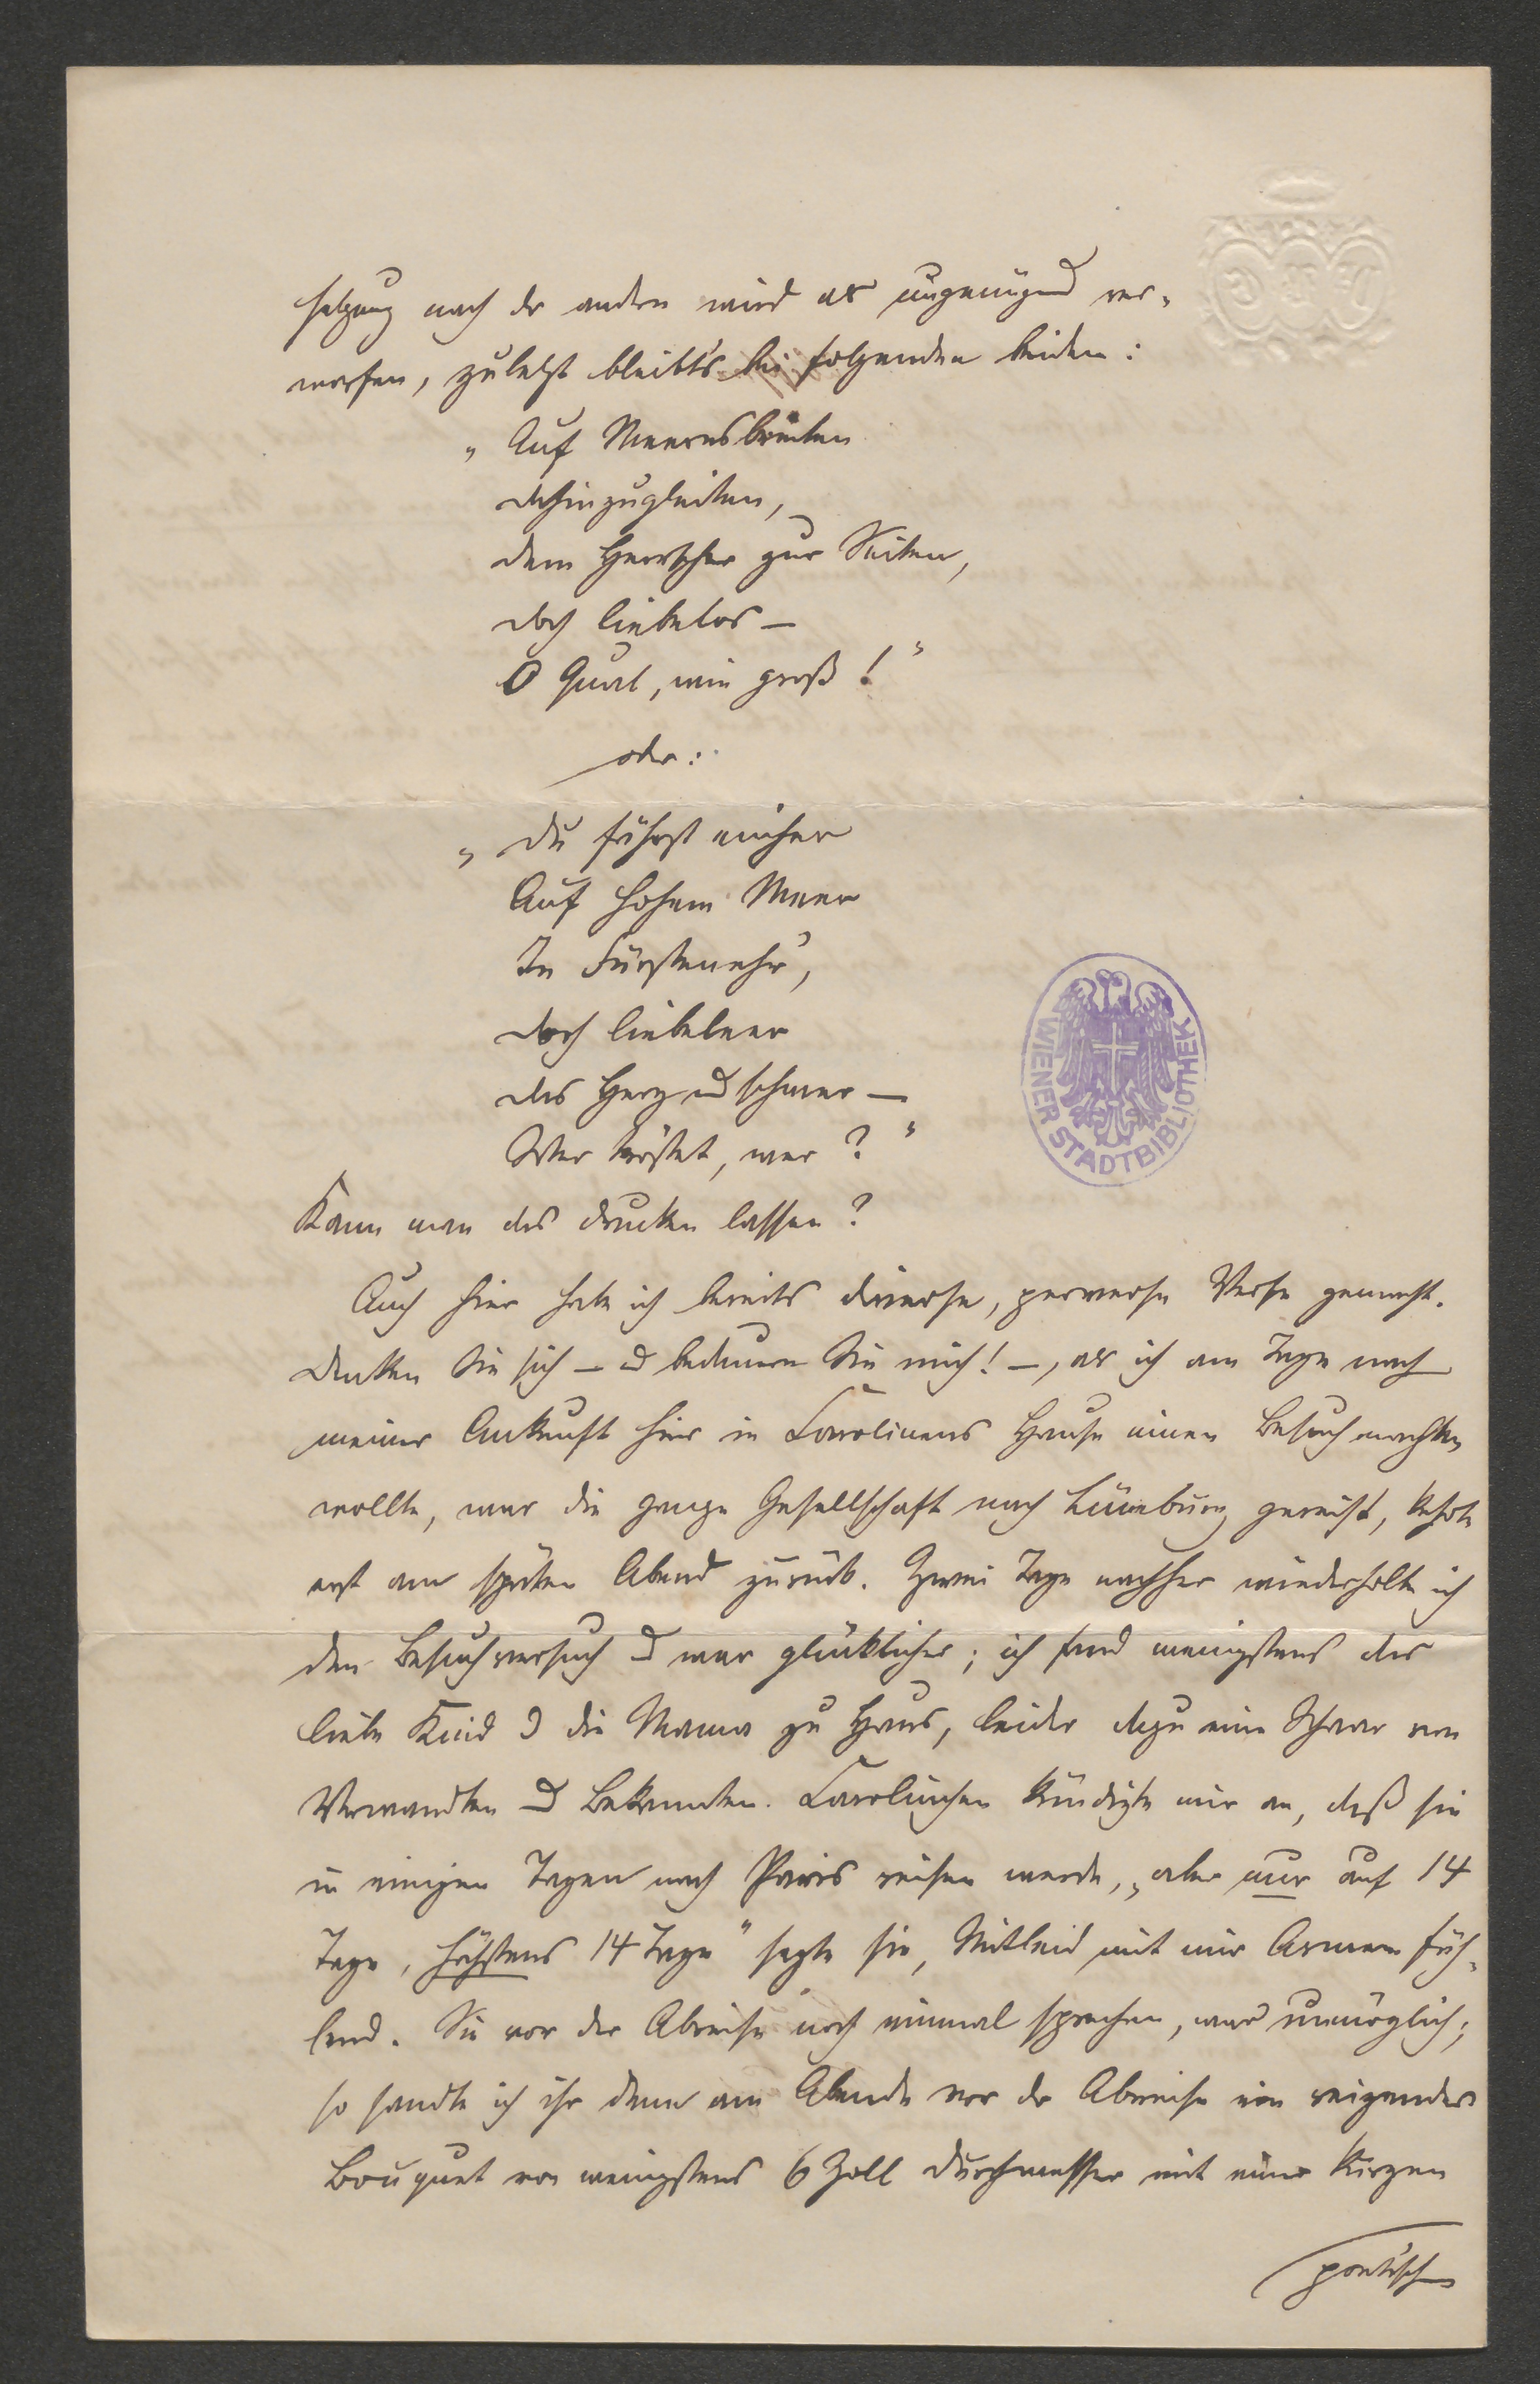 setzung nach der andern wird als ungenügend ver-
worfen, zuletzt bleibt's bei folgenden beiden:
„Auf Meeresbreiten
dahinzugleiten,
dem Herrscher zur Seiten,
doch liebelos —
O Qual, wie groß!"
oder:
„Du fährst einher
Auf hohem Meer
In Fürstenehr',
doch liebeleer
das Herz und schwer —
Wer tröstet, wer?"
Kann man das drucken lassen?
Auch hier habe ich bereits diverse, perverse Verse gemacht.
Denken Sie sich — und bedauern Sie mich! —, als ich am Tage nach
meiner Ankunft hier in Carolinens Hause einen Besuch machen
wollte, war die ganze Gesellschaft nach Lüneburg gereist, kehrte
erst am späten Abend zurück. Zwei Tage nachher wiederholte ich
den Besuchversuch und war glücklicher; ich fand wenigstens das
liebe Kind und die Mama zu Haus, leider dazu eine Schaar von
Verwandten und Bekannten. Carolinchen kündigte mir an, daß sie
in einigen Tagen nach Paris reisen werde, „aber nur auf 14
Tage, höchstens 14 Tage" sagte sie, Mitleid mit mir Armem füh-
lend. Sie vor der Abreise noch einmal sprechen, war unmöglich;
so sandte ich ihr denn am Abende vor der Abreise ein reizendes
Bouquet von wenigstens 6 Zoll Durchmesser mit einer kurzen
poetisch
WIENER STADTBIBLIOTHEK